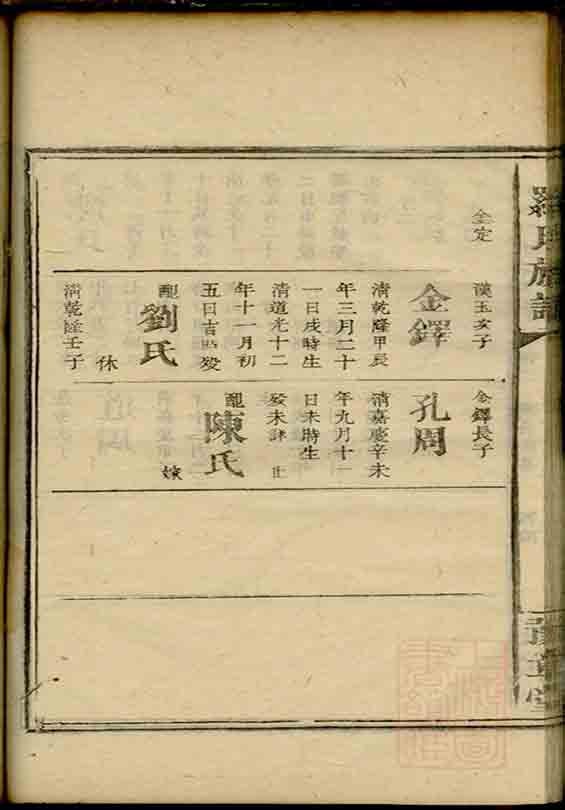 羅氏族譜
全定
漢玉次子
金鐸
清乾隆甲辰
年三月二十
一日戌時生
清道光十二
年十一月初
五日吉時殁
配
劉氏
休
清乾隆壬子
金鐸長子
孔周
清嘉慶辛未
年九月十一
日未時生
殁未詳
配
陳氏